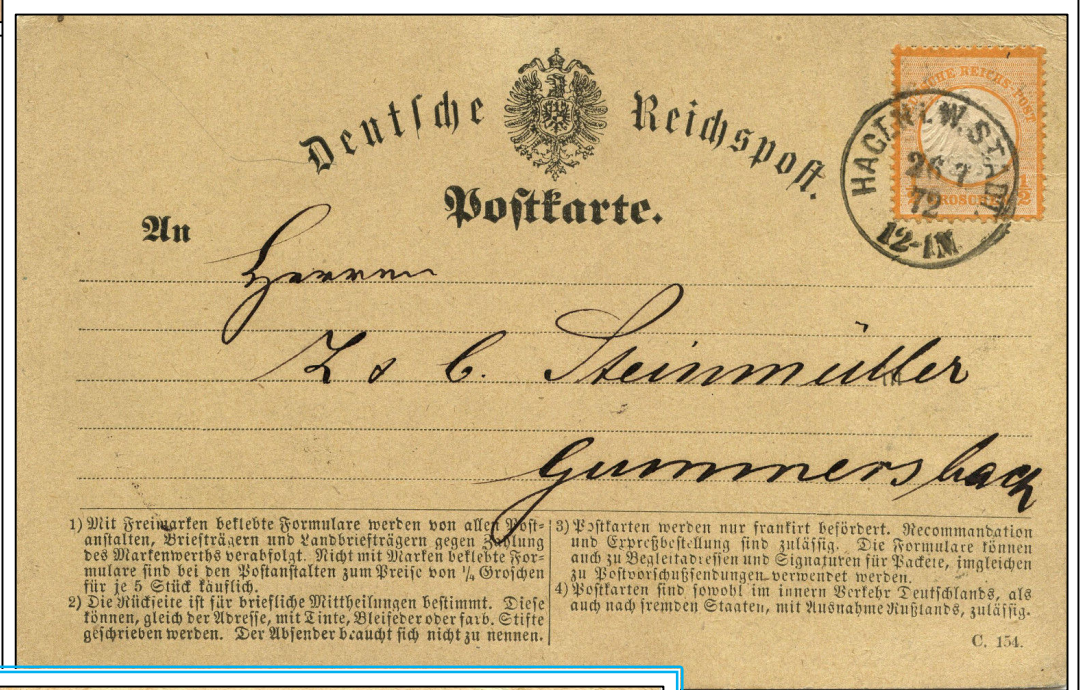 Deutsche Reichspost.
Postkarte.
HAGEN I. W. STADT
26 7
72
12-1N
DEUTSCHE REICHS-POST
½ GROSCHEN ½
An
Herren
L & C. Steinmüller
in
Gummersbach
1) Mit Freimarken beklebte Formulare werden von allen Post-
anstalten, Briefträgern und Landbriefträgern gegen Zahlung
des Markenwerths verabfolgt. Nicht mit Marken beklebte For-
mulare sind bei den Postanstalten zum Preise von ¼ Groschen
für je 5 Stück käuflich.
2) Die Rückseite ist für briefliche Mittheilungen bestimmt. Diese
können, gleich der Adresse, mit Tinte, Bleifeder oder farb. Stifte
geschrieben werden. Der Absender braucht sich nicht zu nennen.
3) Postkarten werden nur frankirt befördert. Recommandation
und Expreßbestellung sind zulässig. Die Formulare können
auch zu Begleitadressen und Signaturen für Packete, imgleichen
zu Postvorschußsendungen verwendet werden.
4) Postkarten sind sowohl im innern Verkehr Deutschlands, als
auch nach fremden Staaten, mit Ausnahme Rußlands, zulässig.
C. 154.